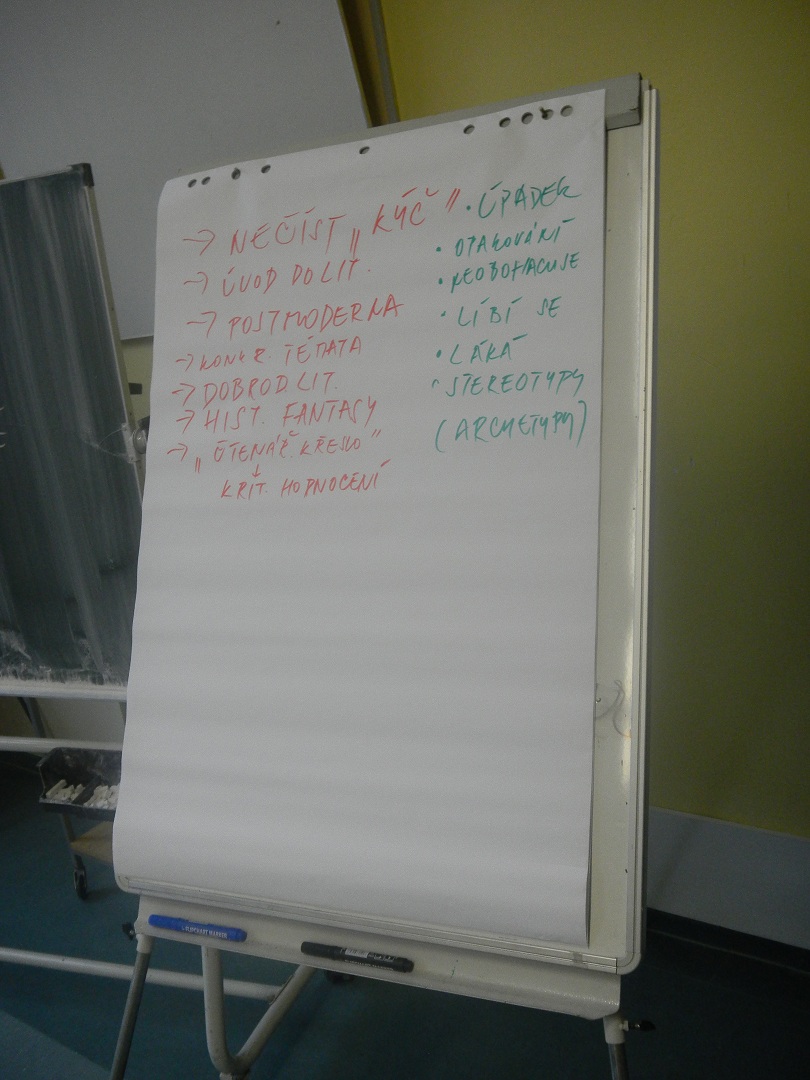 → NEČÍST „KÝČ"
→ ÚVOD DO LIT.
→ POSTMODERNA
→ KONKR. TÉMATA
→ DOBROD LIT.
→ HIST. FANTASY
→ „ČTENÁŘ. KŘESLO"
↓
KRIT. HODNOCENÍ
• ÚPADEK
• OPAKOVÁNÍ
• NEOBOHACUJE
• LÍBÍ SE
• LÁKÁ
• STEREOTYPY
(ARCHETYPY)
FLIPCHART MARKER